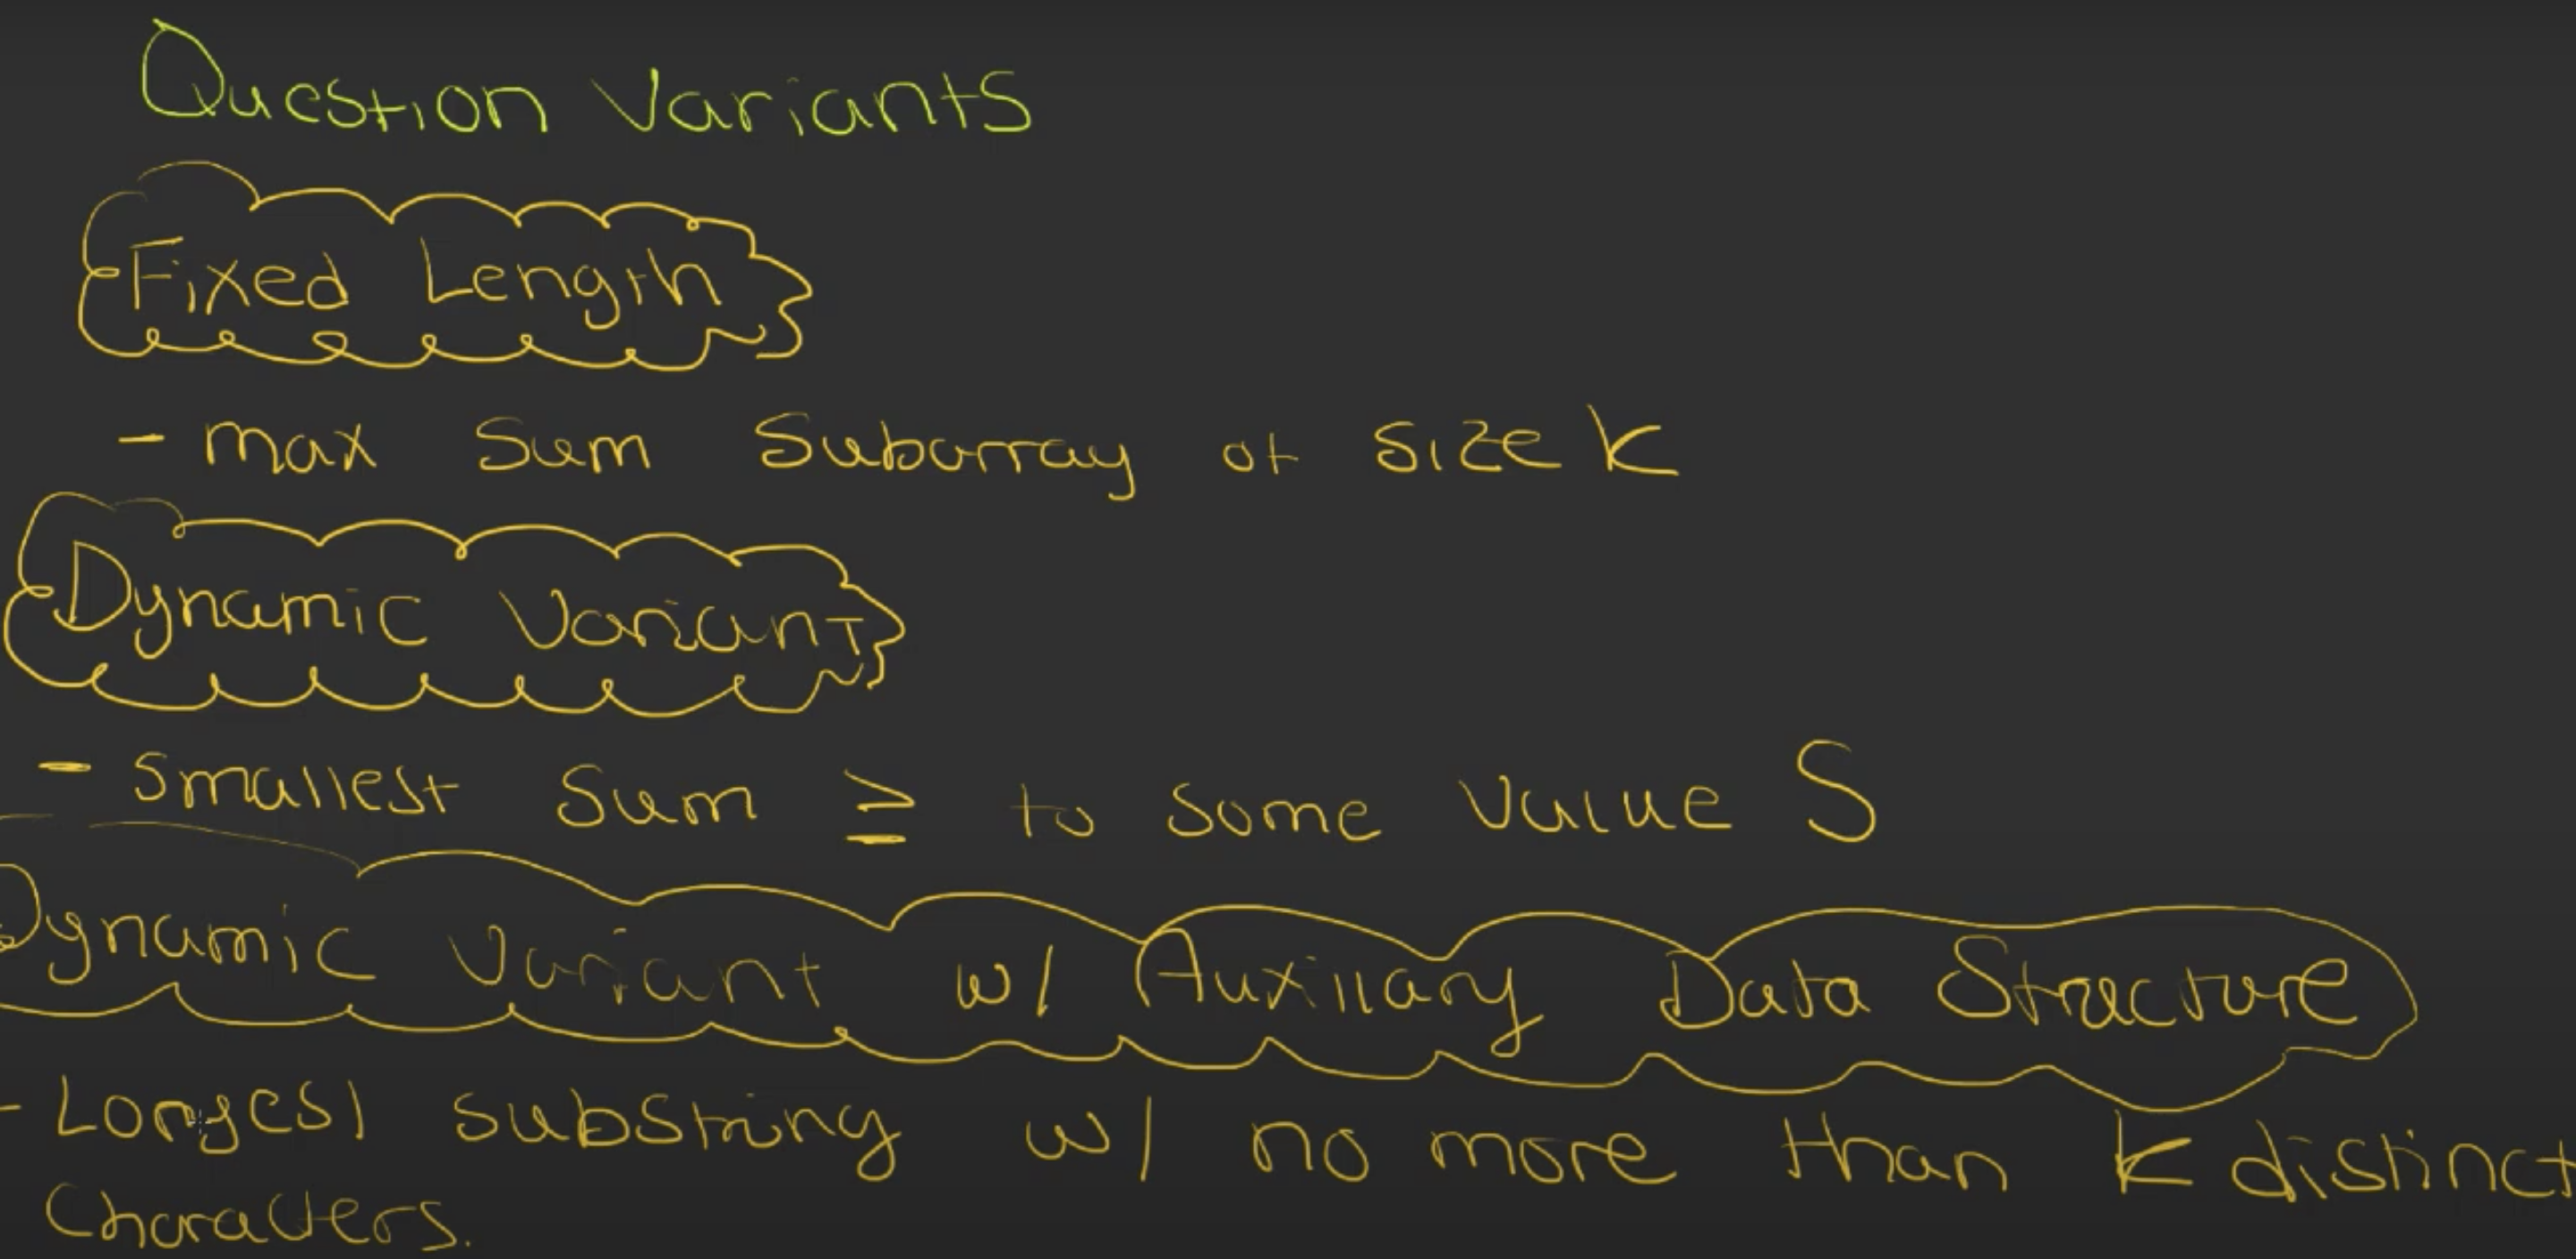 Question Variants
Fixed Length
- max sum subarray of size K
Dynamic Variant
- Smallest sum ≥ to some value S
Dynamic Variant w/ Auxillary Data Structure
- Longest substring w/ no more than K distinct
Characters.